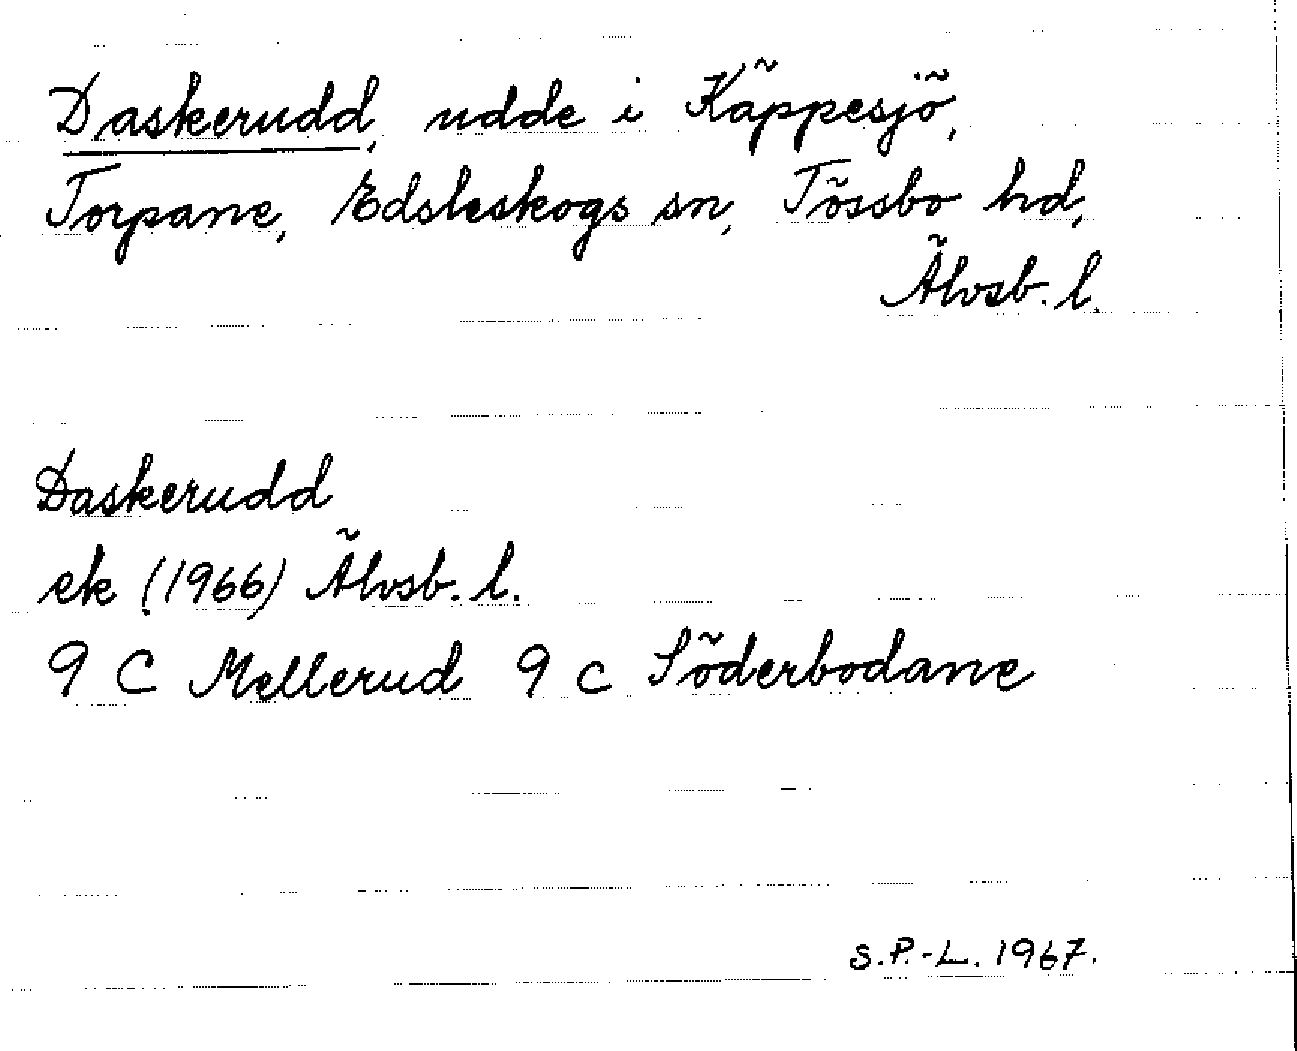 Daskerudd, udde i Käppesjö,
Torpane, Edsleskogs sn, Tössbo hd,
Älvsb. l.
Daskerudd
ek (1966) Älvsb. l.
9 C Mellerud 9 c Söderbodane
S.P.-L. 1967.